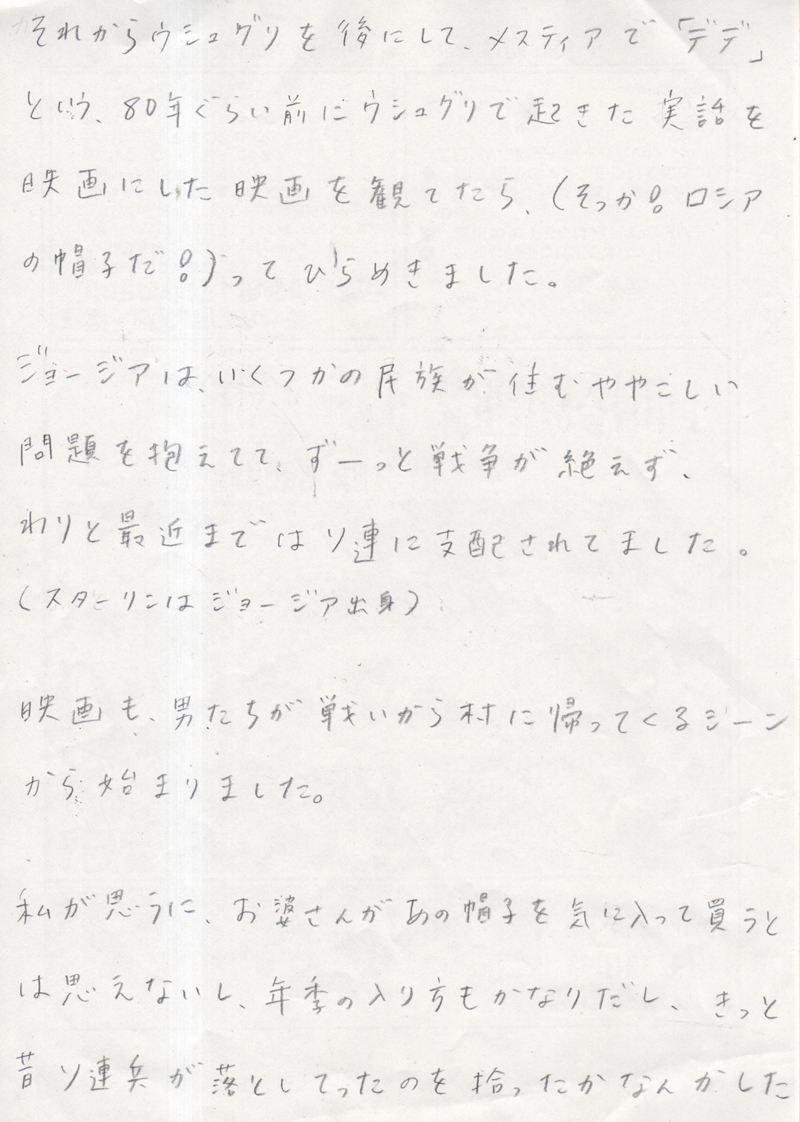 それからウシュグリを後にして、メスティアで「デデ」
という、80年ぐらい前にウシュグリで起きた実話を
映画にした映画を観てたら、(そっか!ロシア
の帽子だ!)ってひらめきました。
ジョージアは、いくつかの民族が住むややこしい
問題を抱えてて、ずーっと戦争が絶えず、
わりと最近まではソ連に支配されてました。
(スターリンはジョージア出身)
映画も、男たちが戦いから村に帰ってくるシーン
から始まりました。
私が思うに、お婆さんがあの帽子を気に入って買うと
は思えないし、年季の入り方もかなりだし、きっと
昔ソ連兵が落としてったのを拾ったかなんかした